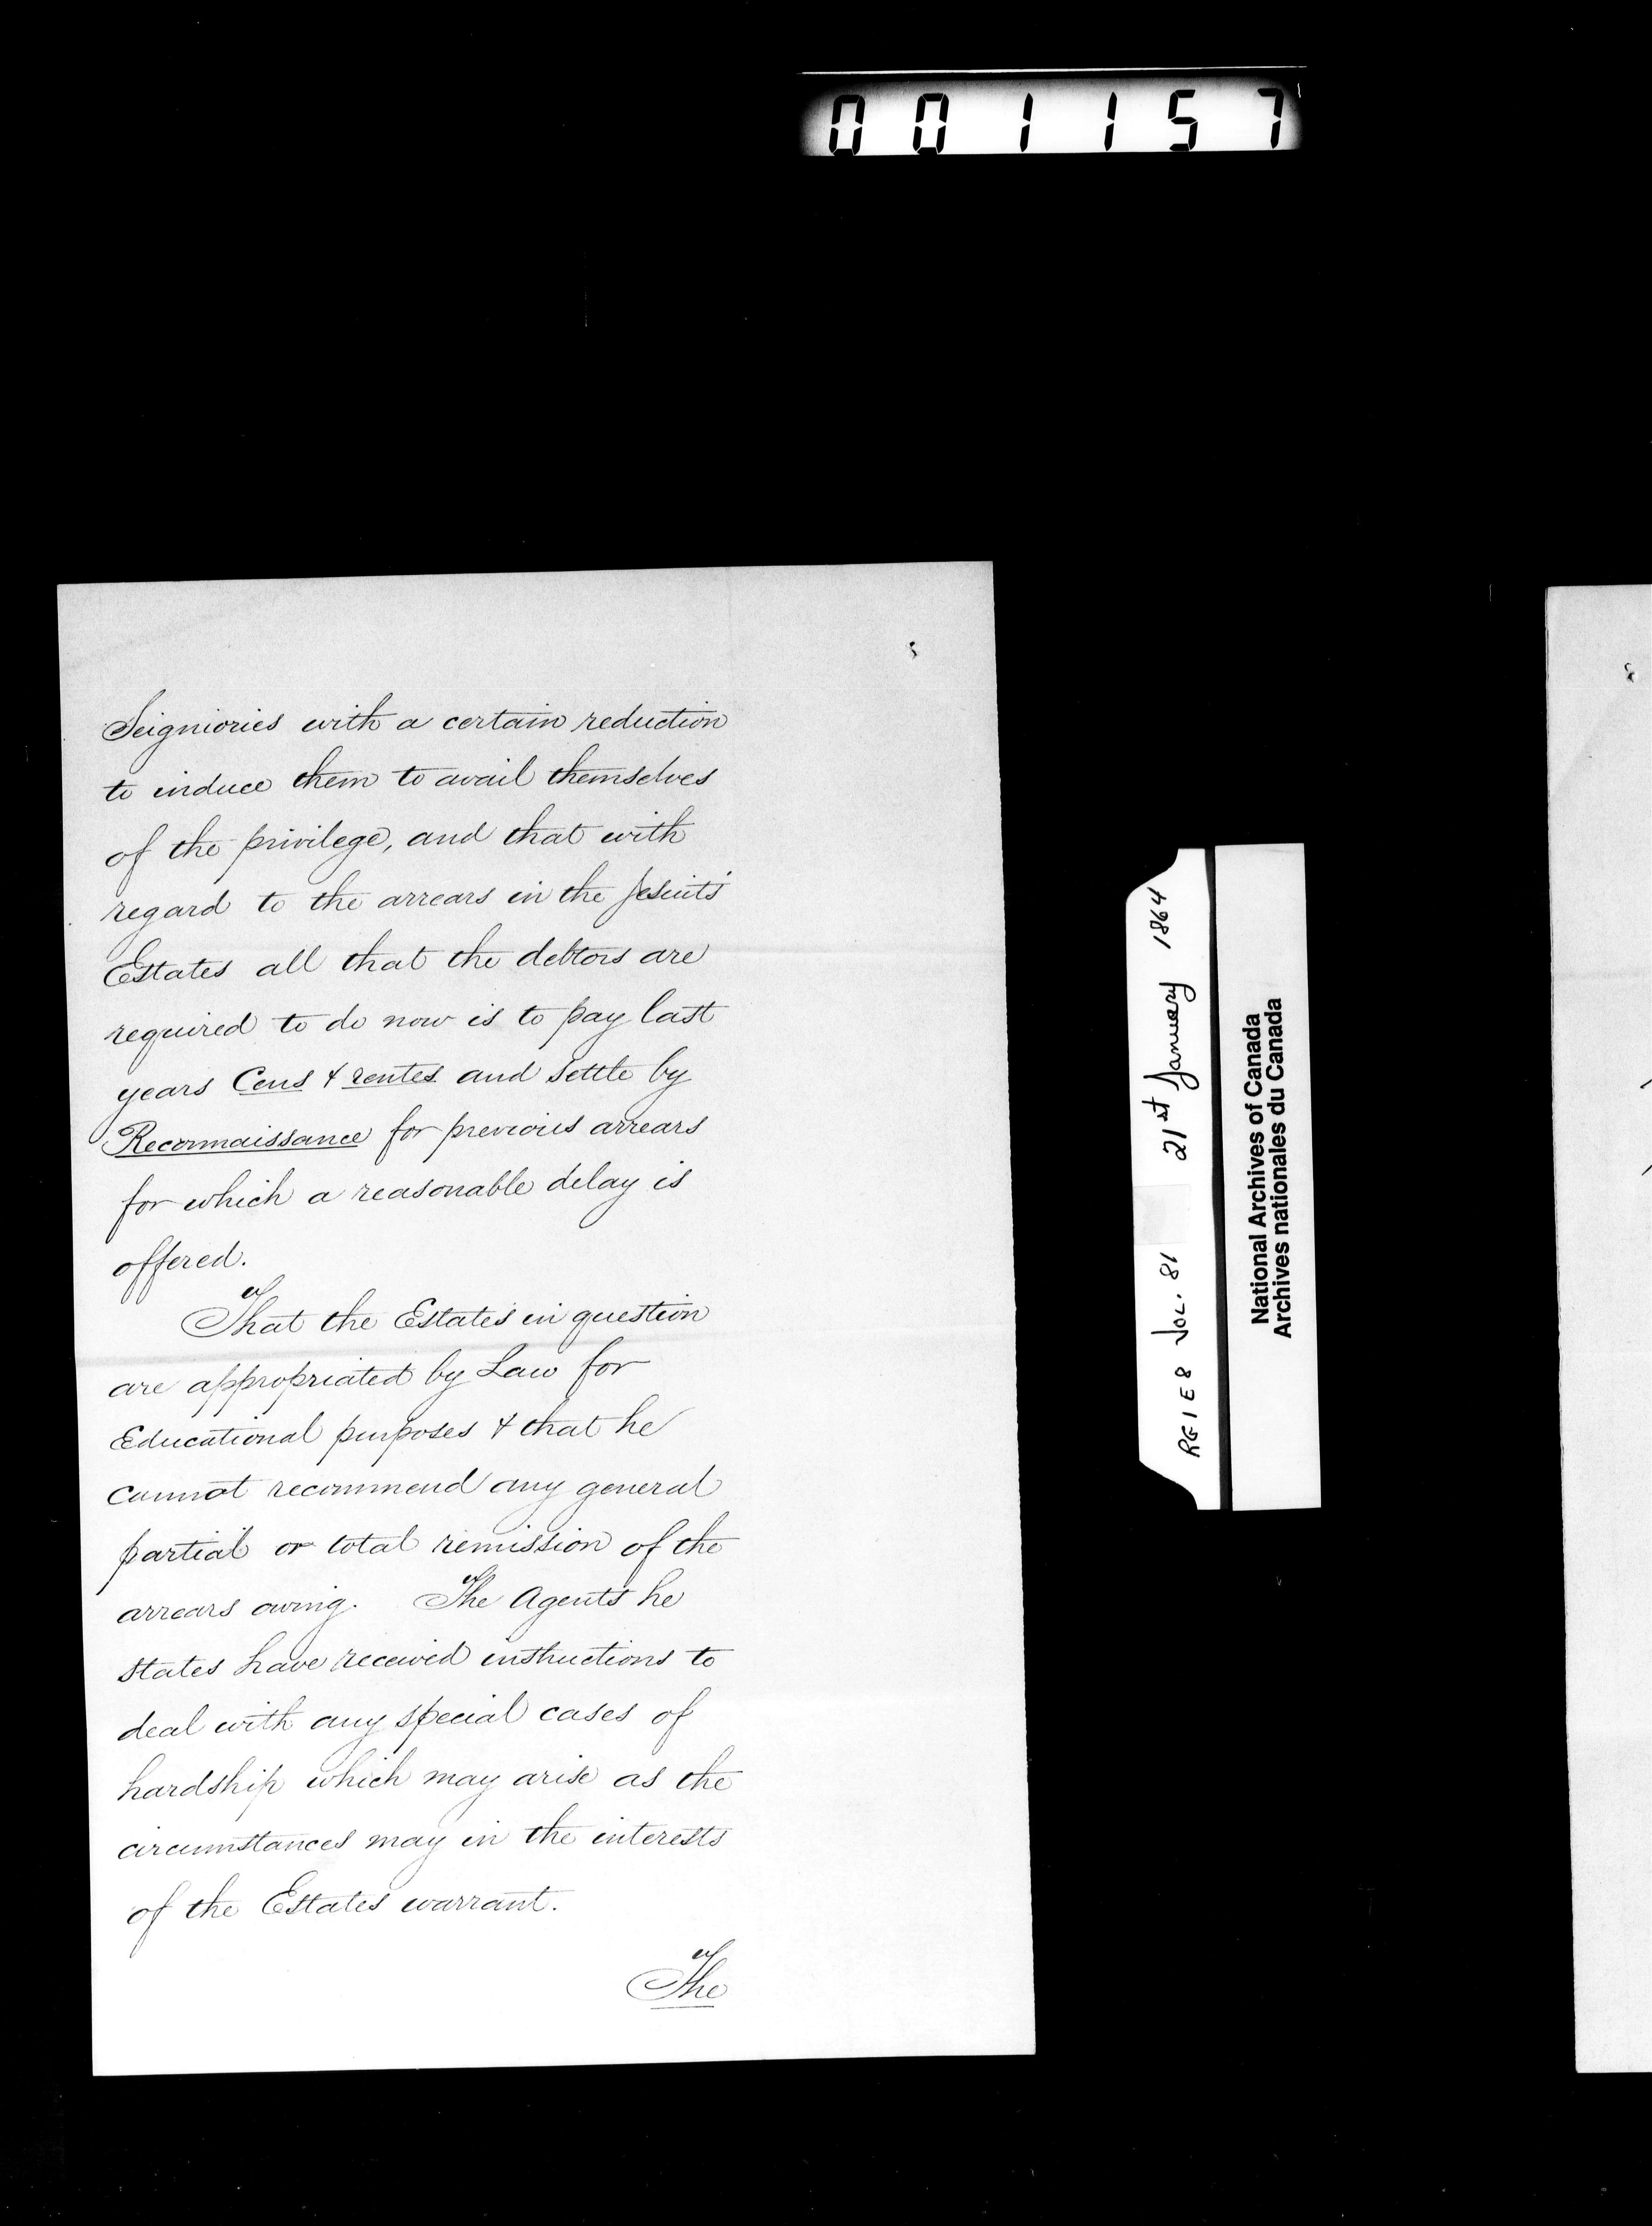 001157
Seigniories with a certain reduction
to induce them to avail themselves
of the privilege, and that with
regard to the arrears in the Jesuits'
Estates all that the debtors are
required to do now is to pay last
years Cens & rentes and settle by
Reconnaissance for previous arrears
for which a reasonable delay is
offered.
That the Estates in question
are appropriated by Law for
Educational purposes & that he
cannot recommend any general
partial or total remission of the
arrears owing. The Agents he
states have received instructions to
deal with any special cases of
hardship which may arise as the
circumstances may in the interests
of the Estates warrant.
The
RG1E8 Vol. 81 21st January 1864
National Archives of Canada
Archives nationales du Canada